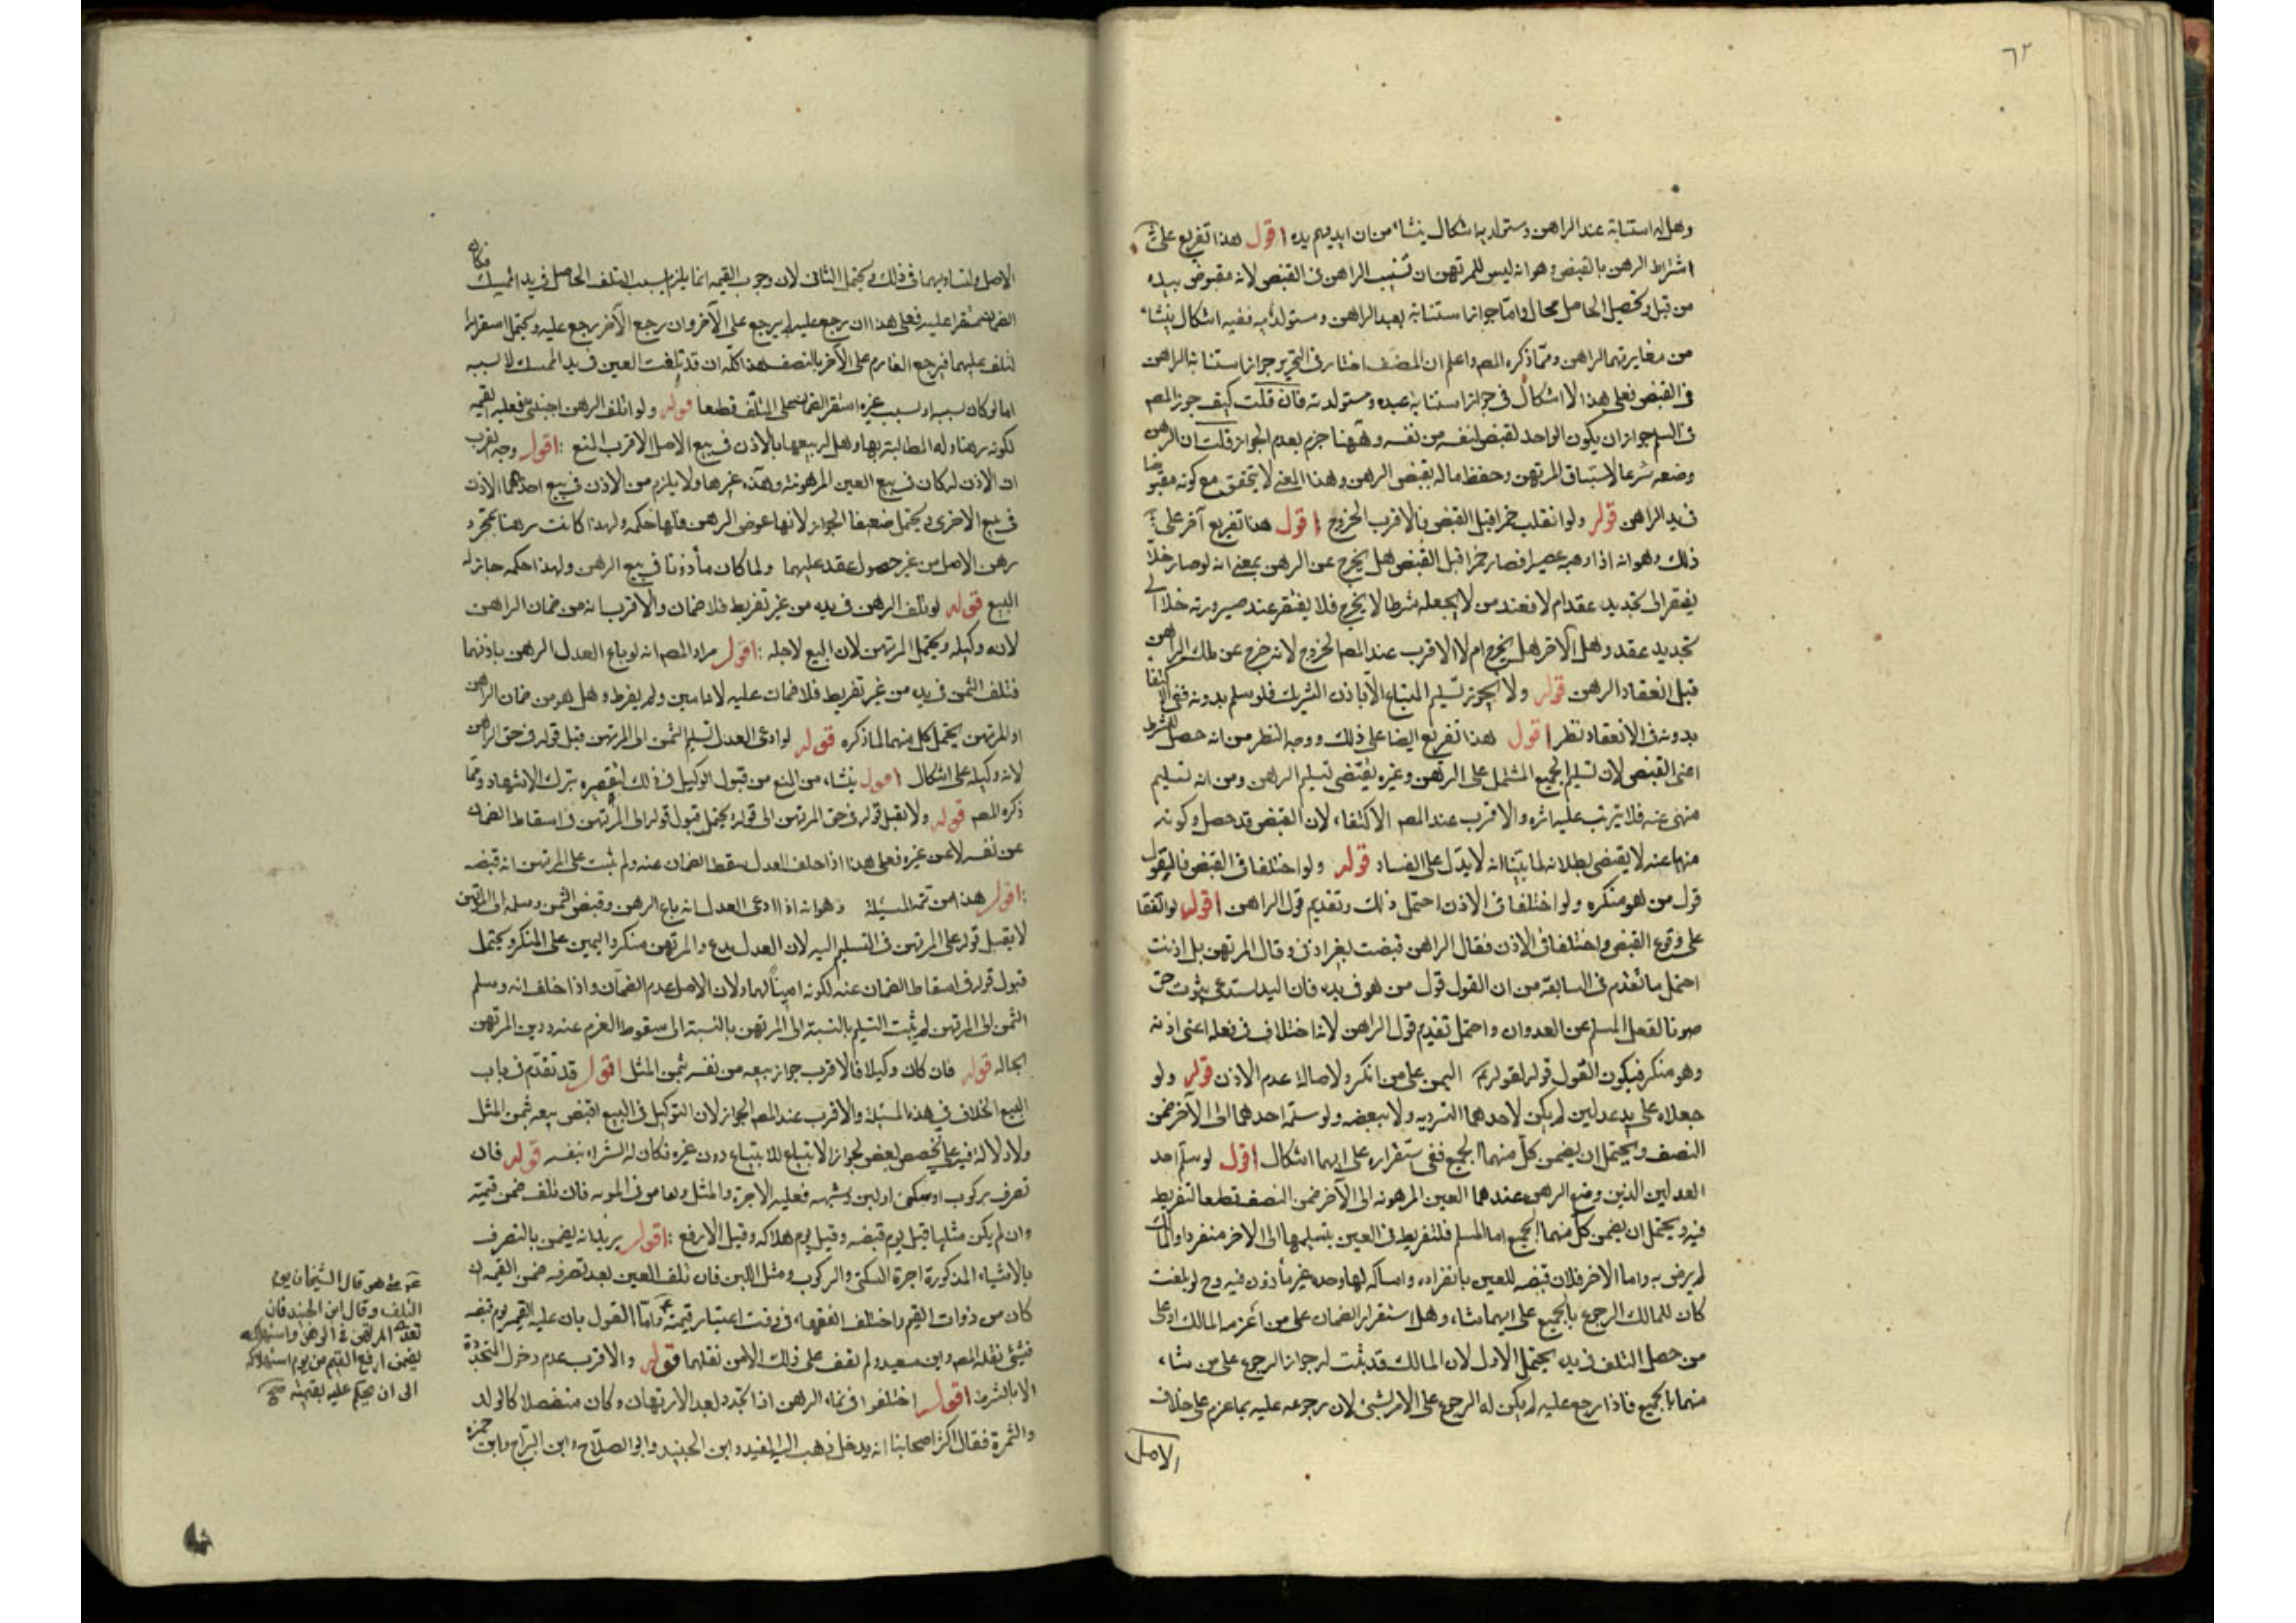 ٦٢
وهل له استنابة عبد الراهن ومستولدته اشكال ينشاء من ان ايديهم يده اقول هذا تفريع على
اشتراط الرهن بالقبض وهو انه ليس للمرتهن ان تستنيب الراهن فى القبض لانه مقبوض بيده
من قبل وتحصيل الحاصل محال واما جواز استنابة عبد الراهن ومستولدته ففيه اشكال ينشاء
من مغايرتهما الراهن ومما ذكره المصـ واعلم ان المصنف اختار فى التحرير جواز استنابة الراهن
فى القبض فعلى هذا لا اشكال فى جواز استنابة عبده ومستولدته فان قلت كيف جوز المصـ
فى السلم جواز ان يكون الواحد لقبض لنفسه من نفسه وههنا جزم بعدم الجواز قلت ان الرهن
وضعه شرعا لاستيثاق المرتهن وحفظ ماله بقبض الرهن وهذا المعنى لا يتحقق مع كونه مقبوضا
فى يد الراهن قوله ولو انقلب خمرا قبل القبض فالاقرب الخروج اقول هذا تفريع آخر على
ذلك وهو انه اذا رهنه عصيرا فصار خمرا قبل القبض هل يخرج عن الرهن بمعنى انه لو صار خلا
يفتقر الى تجديد عقد ام لا فعند من لا يجعله شرطا لا يخرج فلا يفتقر عند صيرورته خلا الى
تجديد عقد وهل الآخر هل يخرج ام لا الاقرب عند المصـ الخروج لانه خرج عن ملك الراهن
قبل انعقاد الرهن قوله ولا يجوز تسليم المشاع الا باذن الشريك فلو سلم بدونه ففى الاكتفا
بدونه فى الانعقاد نظر اقول هذا تفريع ايضا على ذلك ووجه النظر من انه حصل الشرط
اعنى القبض لان تسليم الجميع المشتمل على الرهن وغيره يقتضى تسليم الراهن ومن انه تسليم
منهى عنه فلا يترتب عليه اثره والاقرب عند المصـ الاكتفاء لان القبض قد حصل وكونه
منهيا عنه لا يقتضى بطلانه لما بينا انه لا يدل على الفساد قوله ولو اختلفا فى القبض فالقول
قول من هو منكره ولو اختلفا فى الاذن احتمل ذلك وتقديم قول الراهن اقول لو اتفقا
على وقوع القبض واختلفا فى الاذن فقال الراهن قبضت بغير اذنى وقال المرتهن بل اذنت
احتمل ما تقدم فى السابقة من ان القول قول من هو فى يده فان اليد يستدعى ثبوت حق
صونا لفعل المسلم عن العدوان واحتمل تقديم قول الراهن لانه اختلاف فى فعله اعنى اذنه
وهو منكر فيكون القول قوله لقوله اليمين على من انكر ولاصالة عدم الاذن قوله ولو
جعلاه على يد عدلين لم يكن لاحدهما التفرد به ولا ببعضه ولو سلمه احدهما الى الآخر ضمن
النصف ويحتمل ان يضمن كل منهما الجميع ففى استقراره على ايهما اشكال اقول لو سلم احد
العدلين الذين وضع الرهن عندهما العين المرهونه الى الآخر ضمن النصف قطعا لتفريط
فيه ويحتمل ان يضمن كل منهما الجميع اما المسلم فلتفريطه فى العين بتسليمها الى الاخر منفردا والمالك
لم يرض به واما الاخر فلان قبضه للعين بانفراده وامساكه لها وحده غير مأذون فيه وح لو تلفت
كان للمالك الرجوع بالجميع على ايهما شاء وهل استقرار الضمان على من اغرمه المالك او على
من حصل التلف فى يده يحتمل الاول لان المالك قد ثبت له جواز الرجوع على من شاء
منهما بالجميع فاذا رجع عليه لم يكن له الرجوع على الاخر بشئ لان رجوعه عليه بما غرم على خلاف
الاصل
الاصل ولتساويهما فى ذلك ويحتمل الثانى لان وجوب القيمه انما يلزم بسبب التلف الحاصل فى يد الممسك فكان
الضمان مستقرا عليه فعلى هذا ان رجع عليه لم يرجع على الآخر وان رجع الآخر رجع عليه ويحتمل استقرار
التلف عليهما فيرجع الغارم على الآخر بالنصف هذا كله ان قد تلفت العين فى يد الممسك لا بسببه
اما لو كان بسببه او بسبب غيره استقر الضمان على المتلف قطعا قوله ولو اتلف الرهن اجنبى فعليه القيمه
لكونه رهنا وله المطالبة بها وهل له بيعها بالاذن فى بيع الاصل الاقرب المنع اقول وجه القرب
ان الاذن له كان فى بيع العين المرهونة وهذه غيرها ولا يلزم من الاذن فى بيع احدهما الاذن
فى بيع الاخرى ويحتمل ضعيفا الجواز لانها عوض الرهن فلها حكمه ولهذا كانت رهنا بمجرد
رهن الاصل من غير حصول عقد عليهما ولما كان مأذونا فى بيع الرهن ولهذا حكمه جاز له
البيع قوله لو تلف الرهن فى يده من غير تفريط فلا ضمان والاقرب انه من ضمان الراهن
لانه وكيله ويحتمل المرتهن لان البيع لاجله اقول مراد المصـ انه لو باع العدل الرهن باذنهما
فتلف الثمن فى يده من غير تفريط فلا ضمان عليه لانه امين ولم يفرط وهل هو من ضمان الراهن
او المرتهن يحتمل كل منهما لما ذكره قوله لو ادعى العدل تسليم الثمن الى المرتهن قبل قوله فى حق الراهن
لانه وكيله على اشكال اقول ينشاء من المنع من قبول الوكيل فى ذلك لتقصيره بترك الاشهاد ومما
ذكره المصـ قوله ولا يقبل قوله فى حق المرتهن الى قوله يحتمل قبول قوله الى المرتهن فى اسقاط الضمان
عن نفسه لا عن غيره فعلى هذا اذا حلف العدل سقط الضمان عنه ولم يثبت على المرتهن انه قبضه
اقول هذا من تتمة المسئلة وهو انه اذا ادعى العدل انه باع الرهن وقبض الثمن وسلمه الى المرتهن
لا يقبل قوله على المرتهن فى التسليم اليه لان العدل مدع والمرتهن منكر واليمين على المنكر ويحتمل
قبول قوله فى اسقاط الضمان عنه لكونه امينا لهما ولان الاصل عدم الضمان واذا حلف انه وسلم
الثمن الى المرتهن لم يثبت التسليم بالنسبة الى المرتهن بالنسبة الى سقوط الغرم عنه ودين المرتهن
بحاله قوله فان كان وكيلا فالاقرب جواز بيعه من نفسه بثمن المثل اقول قد تقدم فى باب
البيع الخلاف فى هذه المسئلة والاقرب عند المصـ الجواز لان التوكيل فى البيع اقتضى بيعه بثمن المثل
ولا دلالة فيه على تخصص بعض لجواز الابتياع للابتياع دون غيره فكان له الشراء بنفسه قوله فان
تصرف بركوب او سكنى او لبن وشبهه فعليه الاجرة والمثل وقاص فى المونه فان تلف ضمن قيمته
وان لم يكن مثليا قيل يوم قبضه وقيل يوم هلاكه وقيل الارفع اقول يريد انه يضمن بالتصرف
بالاشياء المذكورة اجرة السكنى والركوب ومثل اللبن فان تلف العين بعد تصرفه ضمن القيمه ان
كان من ذوات القيم واختلف الفقهاء فى وقت اعتبار قيمته واما القول بان عليه القيمه يوم قبضه
فشئ نقله المصـ وابن سعيد ولم نقف على ذلك الا من نقلهما قوله والاقرب عدم دخول المتجددة
الا بالشرط اقول اختلفوا فى نماء الرهن اذا تجدد بعد الارتهان وكان منفصلا كالولد
والثمرة فقال اكثر اصحابنا انه يدخل ذهب اليه المفيد وابن الجنيد وابو الصلاح وابن البراج وابن حمزة
هو قال الشيخان يوم
التلف وقال ابن الجنيد فان
تعدى المرتهن فى الرهن واستهلكه
يضمن ارفع القيم من يوم استهلاكه
الى ان يحكم عليه بقيمته صح